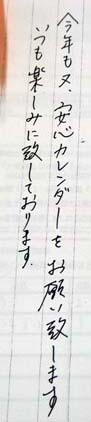 今年も又、安心カレンダーをお願い致します
いつも楽しみに致しております。